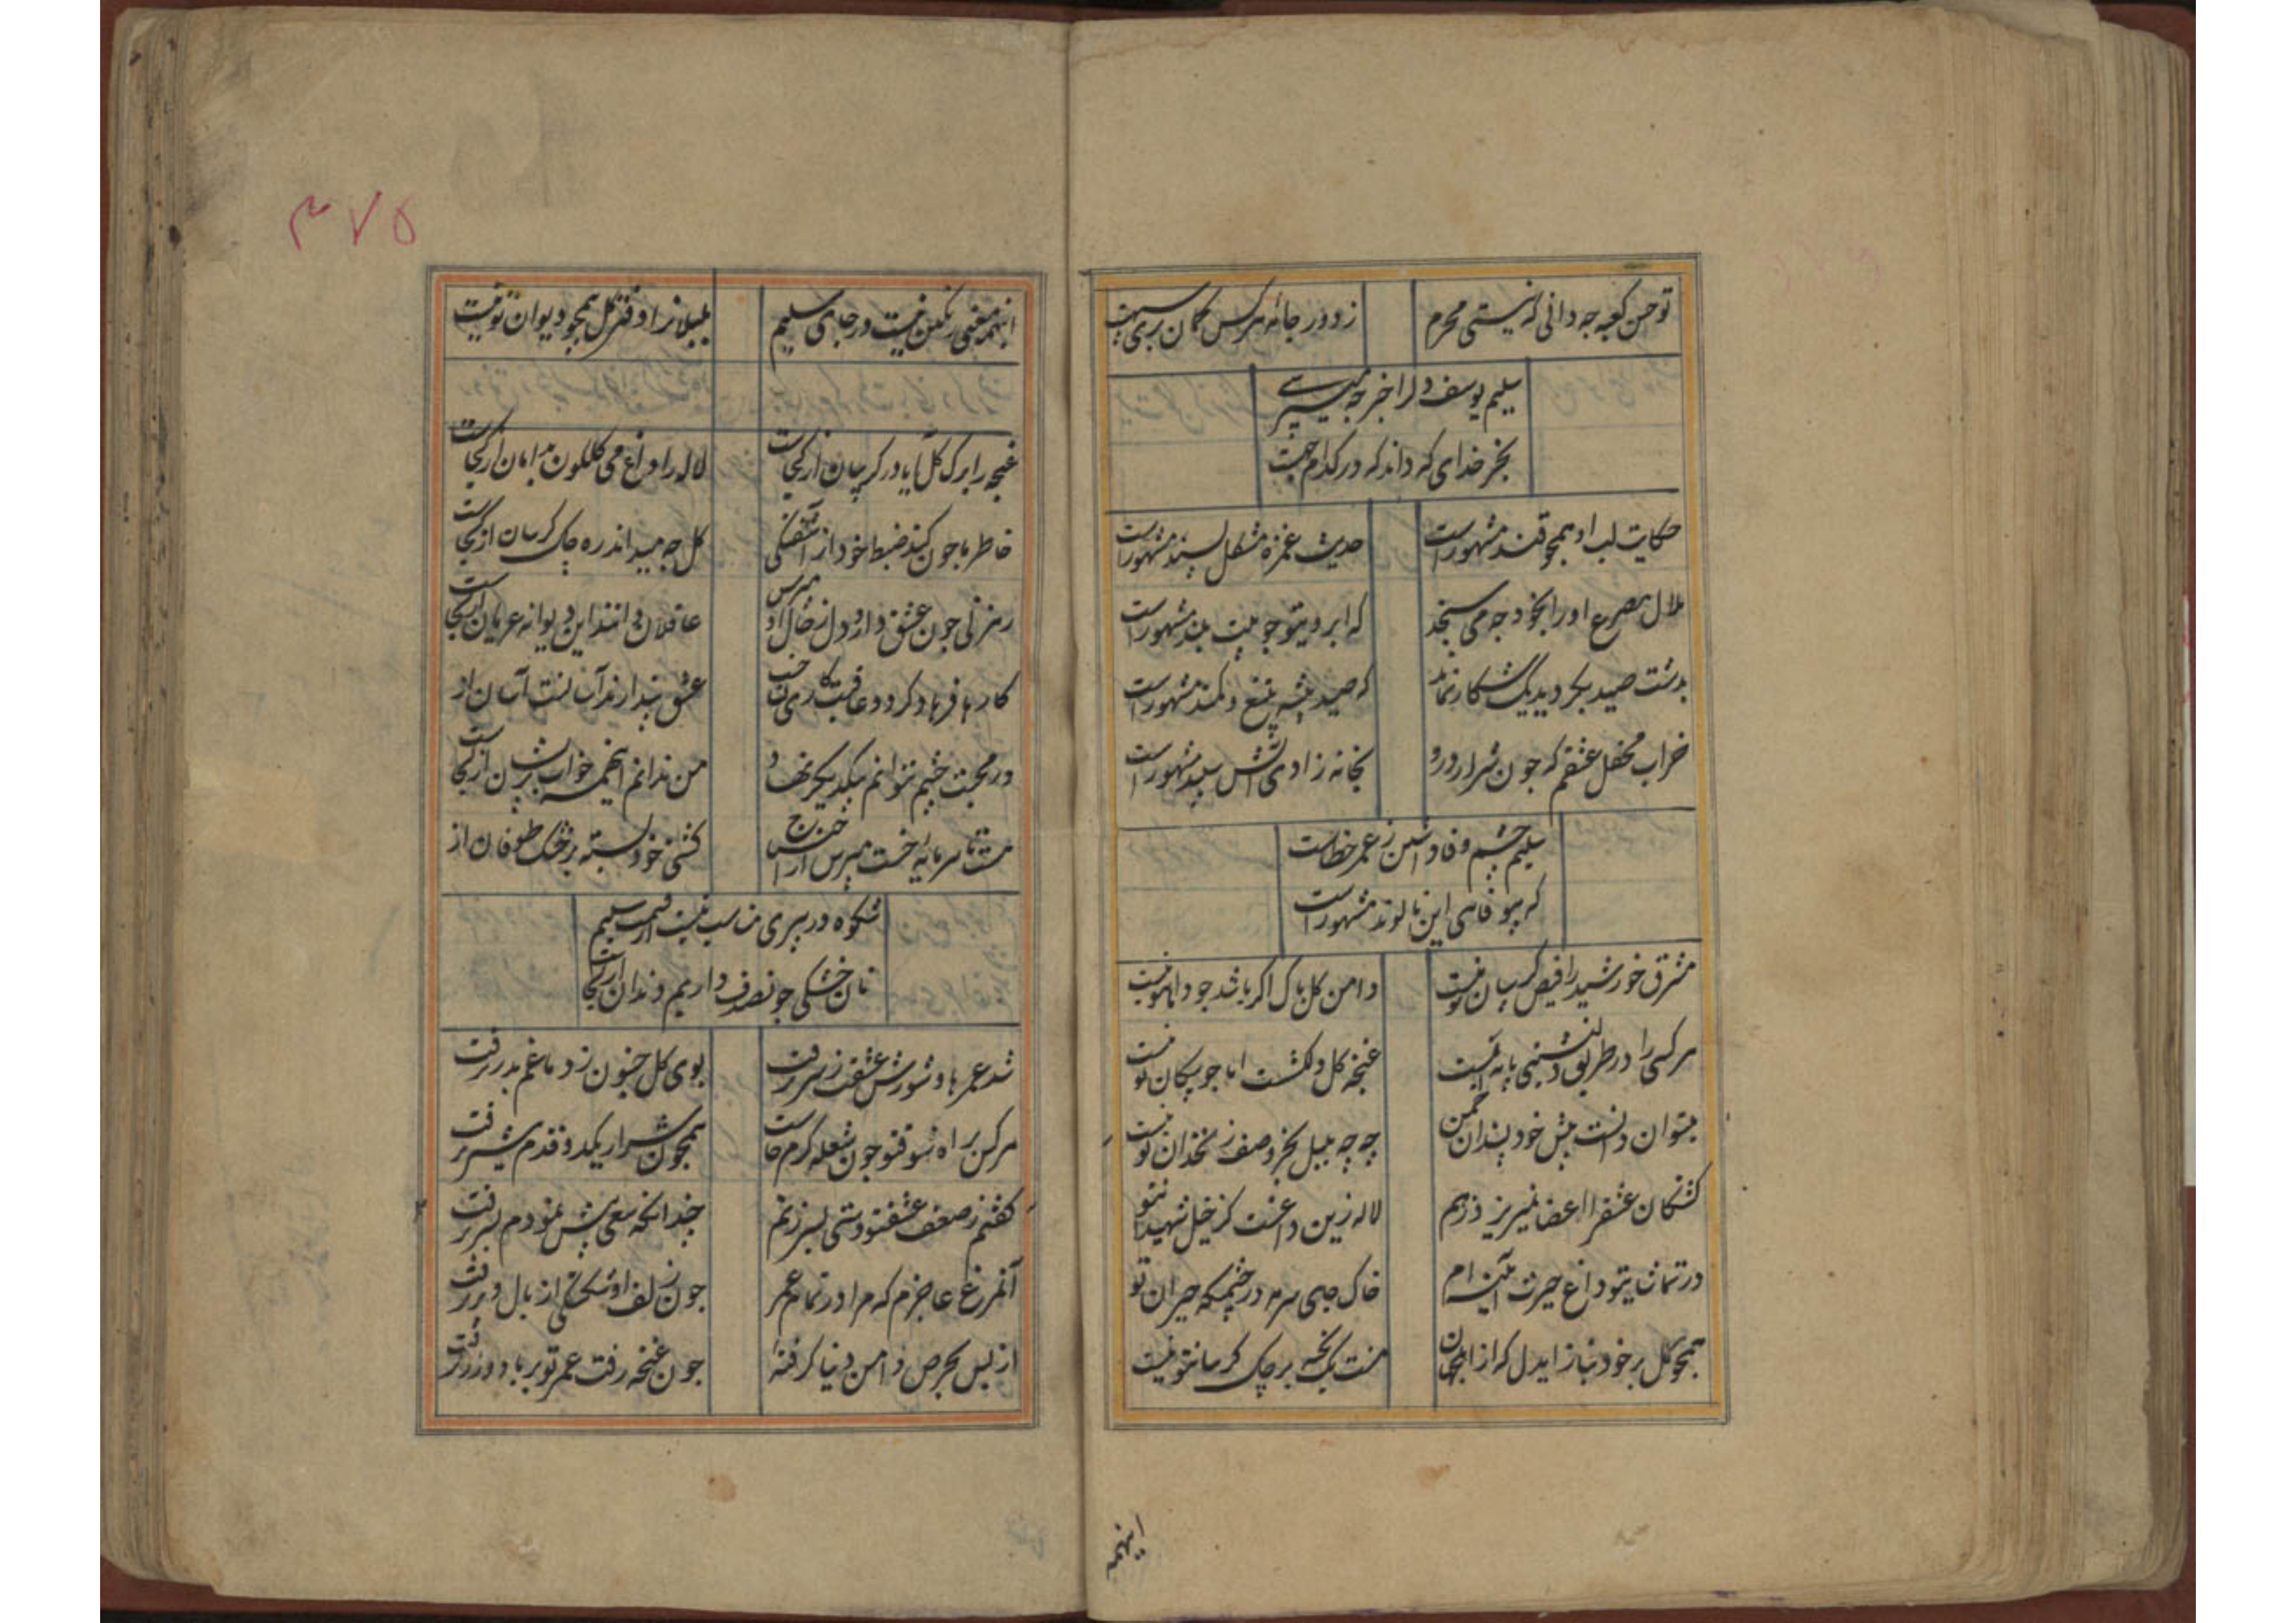 تو حسن کعبه چه دانی که نیستی محرم
ز دور جانه هرکس کمان بری
سلیم یوسف دلرا خبر چه میپرسی
بجز خدای که داند که در کدام
حکایت لب او همچو قند مشهور است
حدیث غمزه مشکل پسند مشهور است
هلال مصرع او را بخود چه می سنجد
که ابرویتو چو بیت بلند مشهور است
بدشت صید بگردید یک شکار نماند
که صید پیشه بتیغ و کمند مشهور است
خراب محفل عشقم که چون شرار درو
بخانه زادی آتش سپند مشهور است
سلیم چشم وفا داشتن ز عمر خطاست
که بیوفایی این مشهور است
مشرق خورشید را فیض کریبان تو نیست
دامن کل پاک اگر باشد چو دامان تو نیست
هرکسی را در طریق دلنشینی پایه ایست
غنچه کل دلکشت اما چو پیکان تو نیست
میتوان دانست پیش خود پسندان چمن
چه چه بلبل بجز وصف زنخدان تو نیست
کشتکان عشق را اعضا نمیریزد ز هم
لاله زین داغست کز خیل شهیدان تو
در تماشایتو داغ حیرت آیینه ام
خاک جای سرمه در چشمیکه حیران تو
همچو کل بر خود مناز ایدل که از اهل جهان
منت یک بخیه بر چاک کریبانتو نیست
اینهمه
۳۷۵
اینهمه معنی رنکین نیست در جای سلیم
بلبلانرا دفتر کل همچو دیوان تو نیست
غنچه را برک کل آیا در کریبان از کجاست
لاله را داغ می کلکون بدامان از کجاست
خاطر ما چون کند ضبط خود از آشفتکی
کل چه میداند ره چاک کریبان از کجاست
رهزنی چون عشق دارد دل ز حال او مپرس
عاقلان دانند این دیوانه عریان از کجاست
کار با فرهاد کردد عاقبت
عشق پندارند آسانست آسان از
در محبت چشم نتوانم بیکدیکر نهاد
من ندانم اینهمه خواب پریشان از کجاست
کشتی خود بسته بر خشک طوفان از
شکوه در پیری مناسب نیست از قسمت سلیم
نان خشکی چون صدف داریم دندان از کجاست
شد عمرها و شورش عشقت ز سر نرفت
بوی کل جنون ز دماغم بدر نرفت
هرکس براه شوقتو چون شعله کرم خاست
همچون شرار یکدو قدم بیشتر نرفت
کفتم ز ضعف عشقتو دستی بسر زنم
چندانکه سعی بیش نمودم بسر نرفت
آنمرغ عاجزم که مرا در تمام عمر
چون زلف او شکستکی از بال و پر نرفت
از بس بحرص دامن دنیا کرفته
چون غنچه رفت عمر تو بر باد و زر نرفت